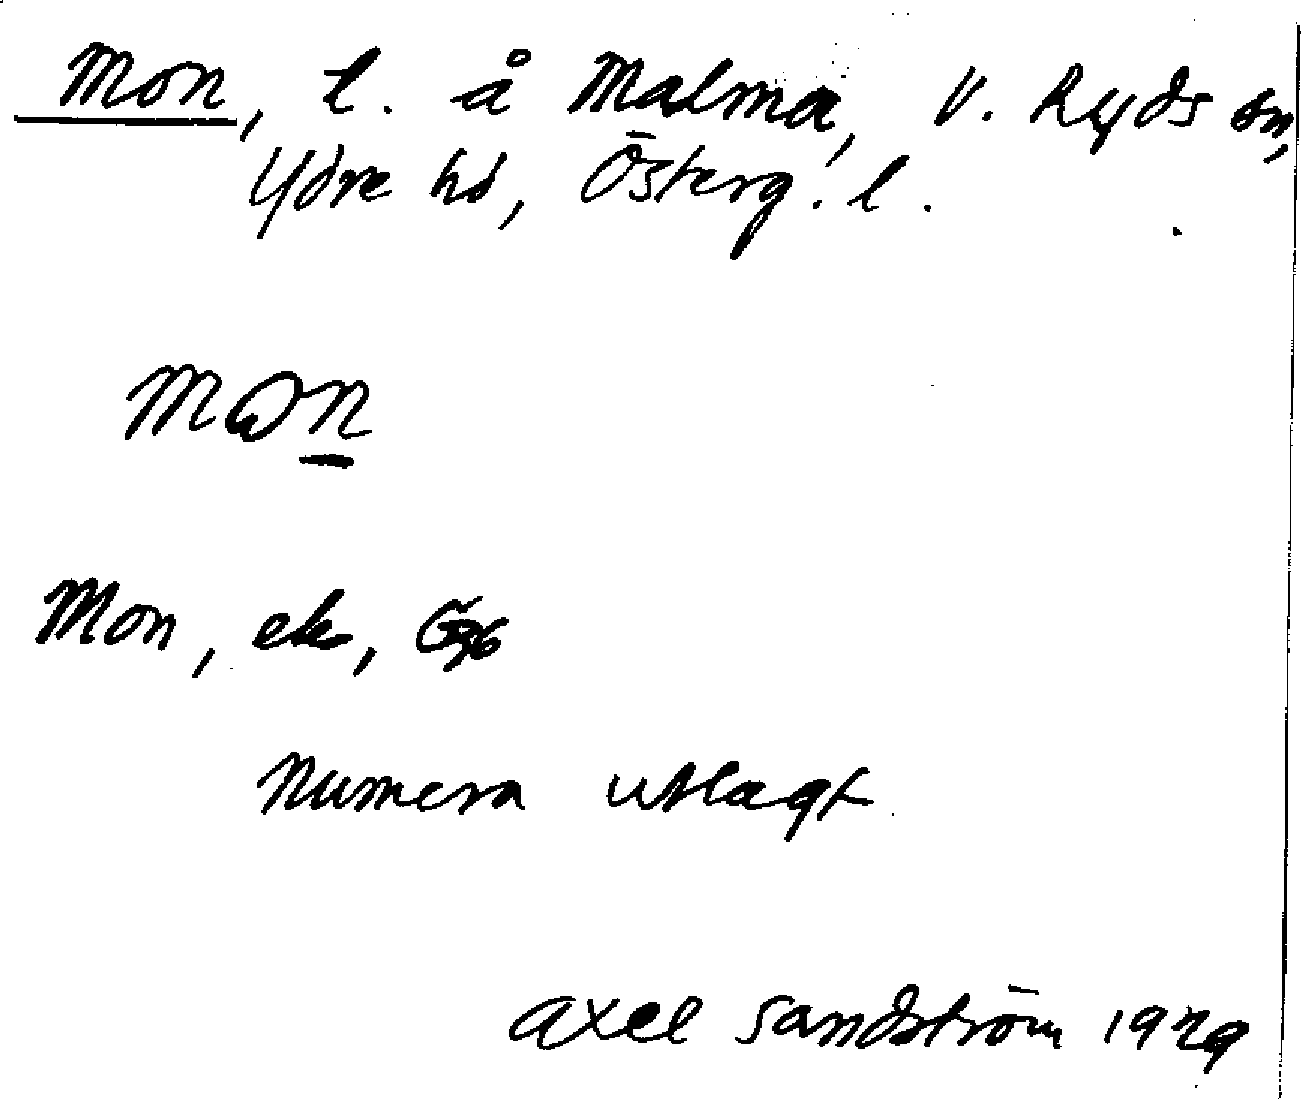 Mon, l. å Malma, V. Ryds sn,
Ydre hd, Österg. l.
Mon
Mon, ek,
Numera utlagt
Axel Sandström 1929